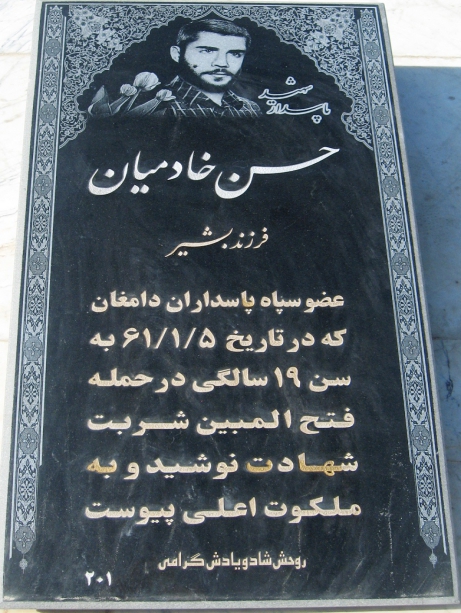 شهید
پاسدار
حسن خادمیان
فرزند بشیر
عضو سپاه پاسداران دامغان
که در تاریخ ۶۱/۱/۵ به
سن ۱۹ سالگی در حمله
فتح المبین شربت
شهادت نوشید و به
ملکوت اعلی پیوست
روحش شاد و یادش گرامی
۲۰۱